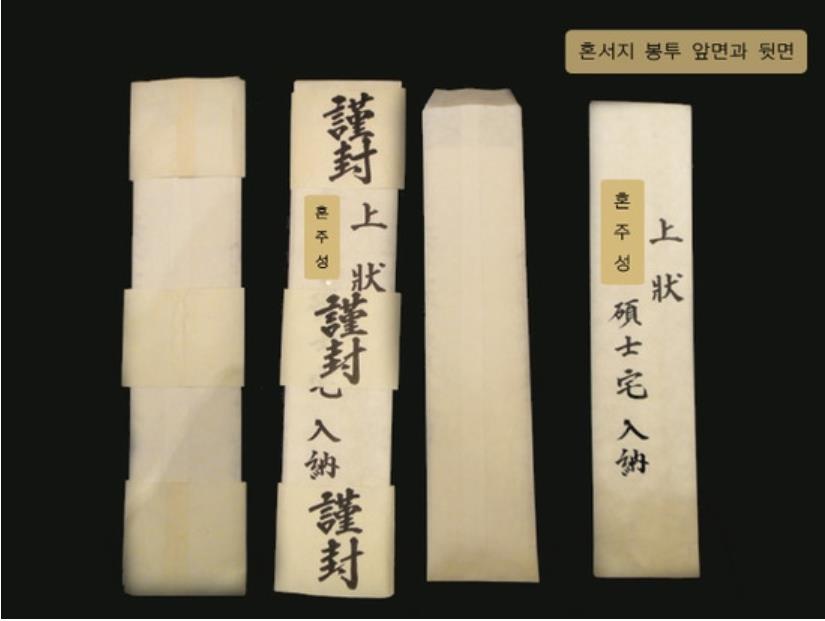 혼서지 봉투 앞면과 뒷면
謹封
上狀
혼주성
謹封
宅入納
謹封
上狀
혼주성
碩士宅入納